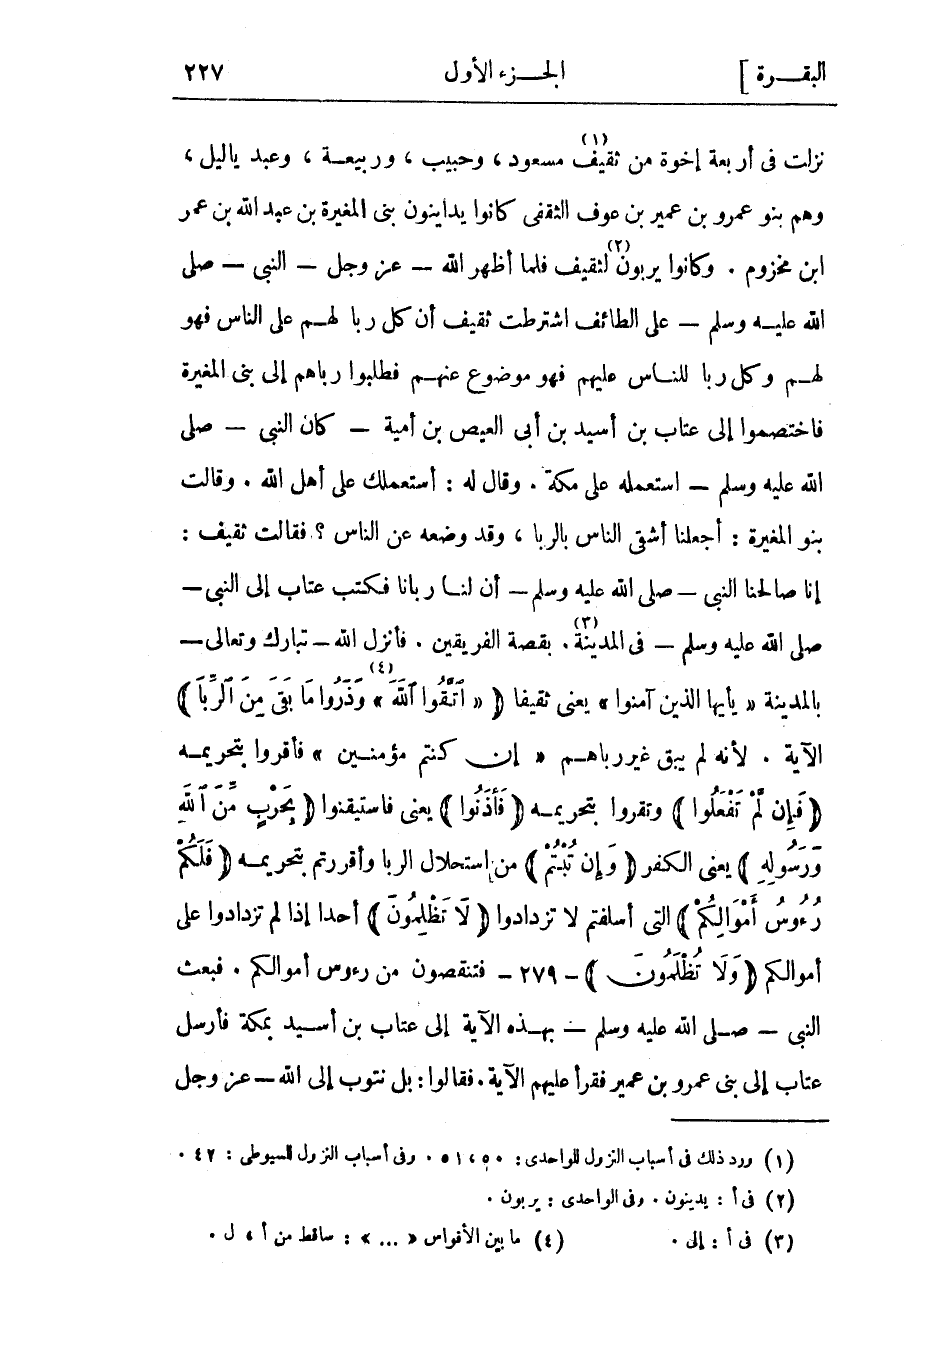 البقـــرة ] الجـــزء الأول ٢٢٧
نزلت فى أربعة إخوة من ثقيف(١) مسعود ، وحبيب ، وربيعــة ، وعبد ياليل ،
وهم بنو عمرو بن عمير بن عوف الثقفى كانوا يداينون بنى المغيرة بن عبد الله بن عمر
ابن مخزوم . وكانوا يربون(٢) لثقيف فلما أظهر الله – عز وجل – النبى – صلى
الله عليــه وسلم – على الطائف اشترطت ثقيف أن كل ربا لهــم على الناس فهو
لهــم وكل ربا للنــاس عليهم فهو موضوع عنهــم فطلبوا رباهم إلى بنى المغيرة
فاختصموا إلى عتاب بن أسيد بن أبى العيص بن أمية – كان النبى – صلى
الله عليه وسلم – استعمله على مكة . وقال له : أستعملك على أهل الله . وقالت
بنو المغيرة : أجعلنا أشقى الناس بالربا ، وقد وضعه عن الناس ؟ فقالت ثقيف :
إنا صالحنا النبى – صلى الله عليه وسلم – أن لنــا ربانا فكتب عتاب إلى النبى –
صلى الله عليه وسلم – فى المدينة(٣). بقصة الفريقين . فأنزل الله – تبارك وتعالى –
بالمدينة « يأيها الذين آمنوا » يعنى ثقيفا ﴿ « ٱتَّقُوا ٱللَّهَ(٤) » وَذَرُوا مَا بَقِىَ مِنَ ٱلرِّبَا ﴾
الآية . لأنه لم يبق غير رباهــم « إن كنتم مؤمنــين » فأقروا بتحريمــه
﴿ فَإِن لَّمْ تَفْعَلُوا ﴾ وتقروا بتحريمــه ﴿ فَأْذَنُوا ﴾ يعنى فاستيقنوا ﴿ بِحَرْبٍ مِّنَ ٱللَّهِ
وَرَسُولِهِ ﴾ يعنى الكفر ﴿ وَإِن تُبْتُمْ ﴾ من استحلال الربا وأقررتم بتحريمــه ﴿ فَلَكُمْ
رُءُوسُ أَمْوَالِكُمْ ﴾ التى أسلفتم لا تزدادوا ﴿ لَا تَظْلِمُونَ ﴾ أحدا إذا لم تزدادوا على
أموالكم ﴿ وَلَا تُظْلَمُونَ ﴾ – ٢٧٩ – فتنقصون من رءوس أموالكم . فبعث
النبى – صــلى الله عليه وسلم – بهــذه الآية إلى عتاب بن أسـيد بمكة فأرسل
عتاب إلى بنى عمرو بن عمير فقرأ عليهم الآية . فقالوا : بل نتوب إلى الله – عز وجل
(١) ورد ذلك فى أسباب النزول للواحدى : ٥٠ ، ٥١ . وفى أسباب النزول للسيوطى : ٤٢ .
(٢) فى أ : يدينون . وفى الواحدى : يربون .
(٣) فى أ : إلى . (٤) ما بين الأقواس « ... » : ساقط من أ ، ل .